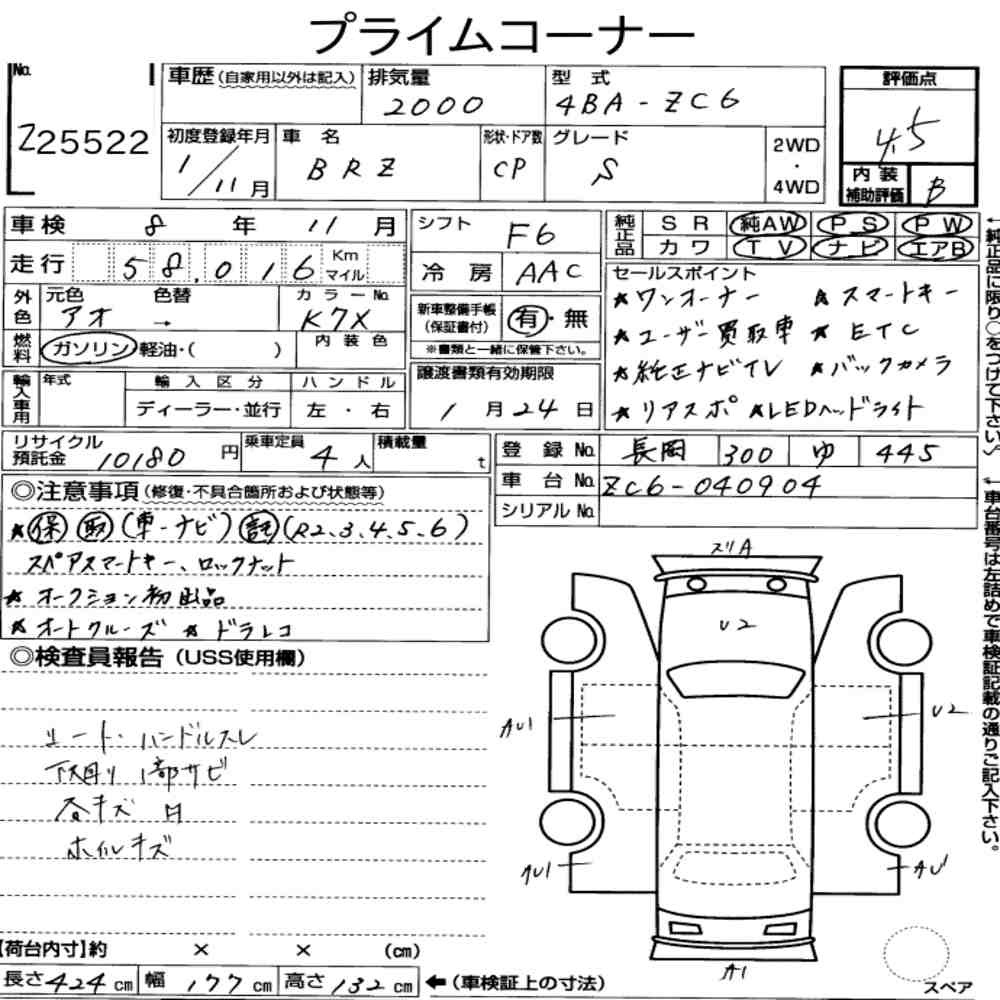 プライムコーナー
No. Z25522
車歴 (自家用以外は記入)
排気量 2000
型式 4BA-ZC6
評価点 4.5
初度登録年月 1/11月
車名 BRZ
形状・ドア数 CP
グレード S
2WD・4WD
内装補助評価 B
車検 8年11月
シフト F6
純正品 SR 純AW PS PW
カワ TV ナビ エアB
走行 58,016 Km マイル
冷房 AAC
外色 元色 アオ 色替 → カラーNo. K7X
内装色
新車整備手帳(保証書付) 有・無
※書類と一緒に保管下さい。
燃料 ガソリン 軽油・( )
セールスポイント
★ワンオーナー ★スマートキー
★ユーザー買取車 ★ETC
★純正ナビTV ★バックカメラ
★リアスポ ★LEDヘッドライト
輸入車用 年式 輸入区分 ハンドル
ディーラー・並行 左・右
譲渡書類有効期限 1月24日
リサイクル預託金 10180円
乗車定員 4人
積載量 t
登録No. 長岡 300 ゆ 445
車台No. ZC6-040904
シリアルNo.
←純正品に限り○をつけて下さい。
←車台番号は左詰めで車検証記載の通りご記入下さい。
◎注意事項 (修復・不具合箇所および状態等)
★保 取(車・ナビ) 記(R2.3.4.5.6)
スペアスマートキー、ロックナット
★オークション初出品
★オートクルーズ ★ドラレコ
◎検査員報告 (USS使用欄)
シート・ハンドルスレ
下回り1部サビ
各キズ 凹
ホイルキズ
スリA
U2
AU1
U2
AU1
AU1
A1
スペア
【荷台内寸】約 × × (cm)
長さ424cm 幅177cm 高さ132cm ←(車検証上の寸法)